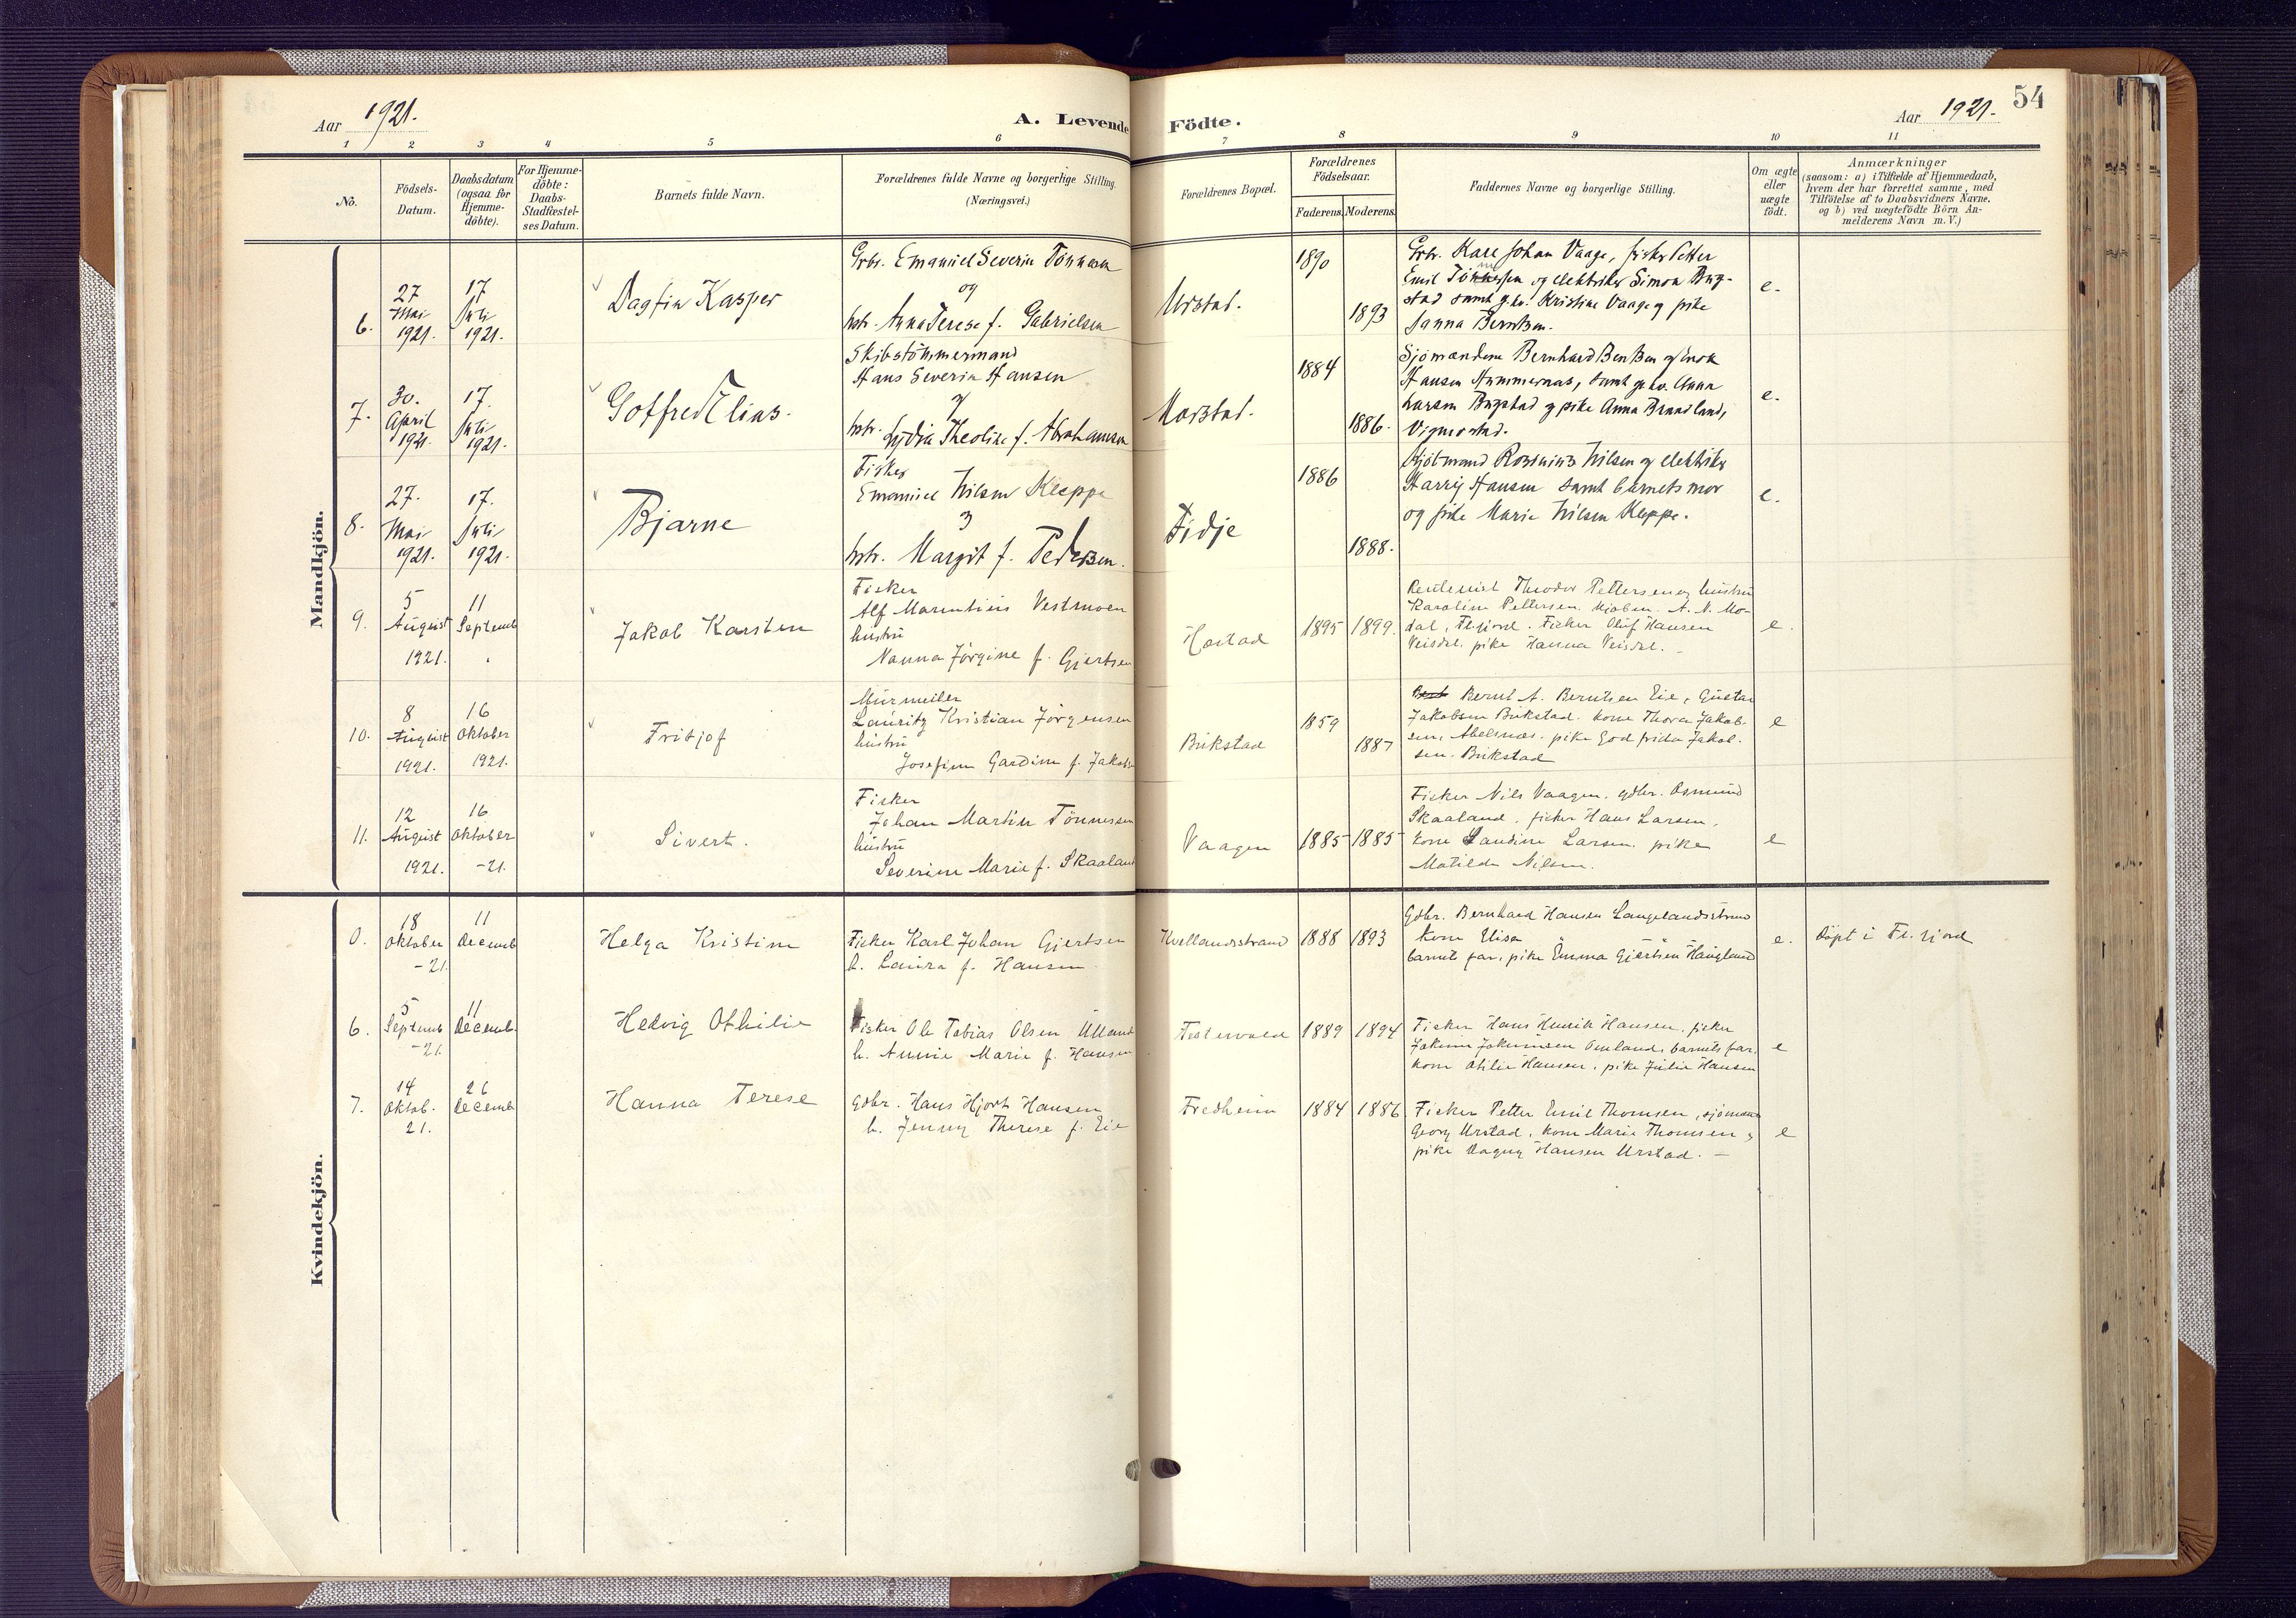 Aar 1921.
A. Levende Födte.
Aar 1921.
54
1 2 3 4 5 6 7 8 9 10 11
No.
Födsels-
Datum.
Daabsdatum
(ogsaa for
Hjemme-
döbte).
For Hjemme-
döbte:
Daabs-
Stadfæstel-
ses Datum.
Barnets fulde Navn.
Forældrenes fulde Navne og borgerlige Stilling.
(Næringsvei.)
Forældrenes Bopæl.
Forældrenes
Födselsaar.
Faderens. Moderens.
Faddernes Navne og borgerlige Stilling.
Om ægte
eller
uægte
födt.
Anmærkninger
(saasom: a) i Tilfælde af Hjemmedaab,
hvem der har forrettet samme, med
Tilföielse af to Daabsvidners Navne,
og b) ved uægtefödte Börn An-
melderens Navn m.V.)
Mandkjön.
6.
27
Mai
1921.
17
Juli
1921.
Dagfin Kasper
Grbr. Emanuel Severin Tönnesen
og
hstr. Anna Terese f. Gabrielsen
Urstad.
1890
1893
Grbr. Karl Johan Vaage, fisker Petter
Emil og elektriker Simon Byg-
stad samt g.kv. Kristine Vaage og pike
Janna Berntsen.
e.
7.
30.
April
1921.
17.
Juli
1921.
Gotfred Elias.
Skibstömmermand
Hans Severin Hansen
og
hstr. Lydia Theoline f. Abrahamsen
1884
1886.
Sjömændene Bernhard Bentsen og Enok
Hansen samt g.kv. Anna
Larsen og pike Anna
e.
8.
27.
Mai
1921.
17.
Juli
1921.
Bjarne
Fisker
Emanuel Nilsen Kleppe
og
hstr. Margit f. Pedersen.
Fidje
1886
1888.
Sjömand Nilsen og elektriker
Harry Hansen samt barnets mor
og pike Marie Nilsen Kleppe.
e.
9.
5
August
1921.
11
Septemb
Jakob Karsten
Fisker
Alf Marentius Vestmoen
hustru
Nanna Jörgine f. Gjertsen
1895 1899.
Theodor Pettersen og hustru
Karoline Pettersen. A. N. Mo-
dal, Fl.fjord. Fisker Oluf Hansen
Veisdal. pike Hanna Veisdal.
e.
10.
8
August
1921.
16
Oktober
1921.
Fritjof
Murmeiler
Lauritz Kristian Jörgensen
hustru
Josefine Gardine f. Jakobs
Bukstad
1859
1887
Bernt A. Berntsen Eie, Gustav
Jakobsen Bukstad. kone Thora Jakob-
sen, Abelsnæs. pike Godfrida Jakob-
sen. Bukstad
e
11.
12
August
1921.
16
Oktober
-21.
Sivert.
Fisker
Johan Martin Tönnessen
hustru
Severine Marie f. Skaaland
Vaagen
1885 1885
Fisker Nils Vaagen, gdbr. Osmund
Skaaland, fisker Hans Larsen,
kone Landine Larsen. pike
Matilde Nilsen.
e
Kvindekjön.
0.
18
Oktober
-21.
11
Decemb
Helga Kristine
Fisker Karl Johan Gjertsen
h. Laura f. Hansen
Kvellandsstrand
1888 1893
Gdbr. Bernhard Hansen Langelandsstrand
kone Elisa
barnets far, pike Emma Gjertsen Haugland
e.
Döpt i Fl.fjord
6.
5
Septemb
-21.
11
Decemb.
Hedvig Othilie
Fisker Ole Tobias Olsen Ulland
h. Annie Marie f. Hansen
1889 1894
Fisker Hans Henrik Hansen, fisker
Jakum Jokumsen Omland, barnets far,
kone Otilie Hansen, pike Julie Hansen
e
7.
14
Oktob.
21.
26
Decemb
Hanna Terese
Gdbr. Hans Hjort Hansen
h. Jenny Therese f. Eie
Fredheim
1884 1886
Fisker Petter Emil Thomsen, sjömand
Georg Urstad, kone Marie Thomsen,
pike Dagny Hansen Urstad. —
e